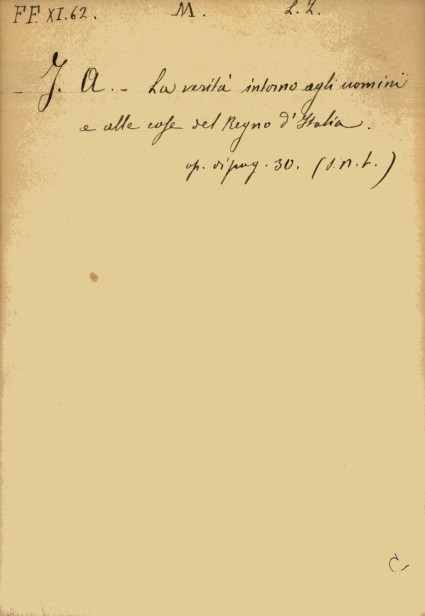 FF. XI. 62. M. L. Z.
J. A. - La verità intorno agli uomini
e alle cose del Regno d'Italia.
op. di pag. 30. (s. n. t.)
C